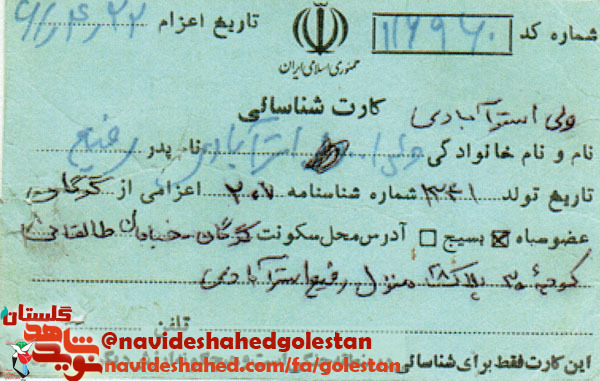 شماره کد ۱۱۶۹۶۰ تاریخ اعزام ۶۱/۴/۲۲
جمهوری اسلامی ایران
کارت شناسائی
ولی استرآبادی
نام و نام خانوادگی ولی استرآبادی نام پدر رفیع
تاریخ تولد ۱۳۴۱ شماره شناسنامه ۲۰۷ اعزامی از گرگان
عضو سپاه بسیج آدرس محل سکونت گرگان خیابان طالقانی
کوچه ۳۰ پلاک ۲۸ منزل رفیع استرآبادی
تلفن
این کارت فقط برای شناسائی
نوید شاهد گلستان
@navideshahedgolestan
navideshahed.com/fa/golestan